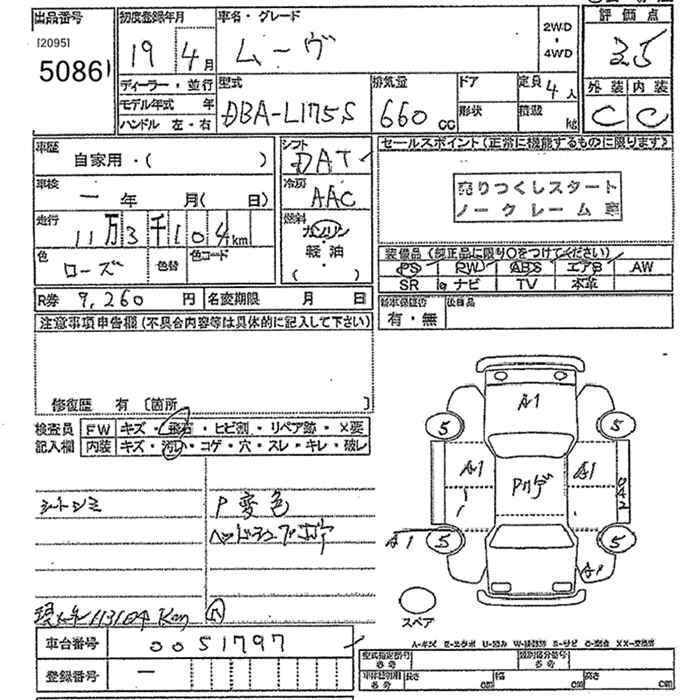 出品番号 初度登録年月 車名・グレード 2WD・4WD 評価点
[2095] 5086
19 4月 ムーヴ 3.5
ディーラー・並行 型式 排気量 ドア 定員 4人 外装 内装
モデル年式 年 DBA-L175S 660cc 形状 積載 kg C C
ハンドル 左・右
車歴 自家用・( ) シフト DAT セールスポイント(正常に機能するものに限ります)
車検 一年 月( 日) 冷房 AAC 売りつくしスタート
ノークレーム車
走行 11万3千104km 燃料 ガソリン・軽油・( )
色 ローズ 色替 色コード
装備品(純正品に限り○をつけてください)
PS PW ABS エアB AW
SR ナビ TV 本革
R券 9,260円 名変期限 月 日 新車保証書 有・無 後日品
注意事項申告欄(不具合内容等は具体的に記入して下さい)
修復歴 有 〔箇所 〕
検査員記入欄 FW キズ・飛石・ヒビ割・リペア跡・X要
内装 キズ・汚れ・コゲ・穴・スレ・キレ・破レ
シートシミ P変色
現メーター113104Km
A1
5 5
A1 Pハゲ A1
A1 5 5
スペア
車台番号 0051797
登録番号 一
A-キズ E-エクボ U-凹み W-補修跡 S-サビ C-腐食 XX-交換済
型式指定番号 類別区分番号
長さ cm 幅 cm 高さ cm